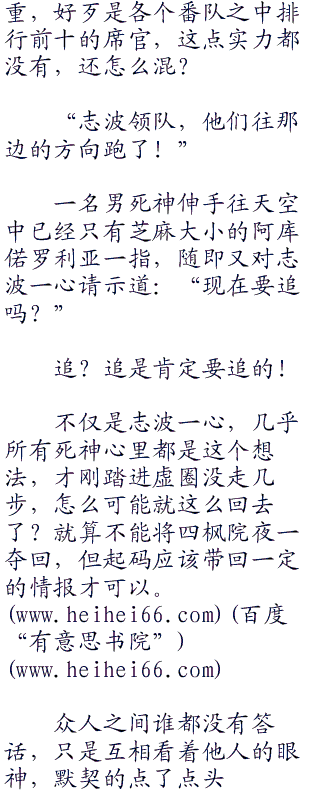 重，好歹是各个番队之中排
行前十的席官，这点实力都
没有，还怎么混？
“志波领队，他们往那
边的方向跑了！”
一名男死神伸手往天空
中已经只有芝麻大小的阿库
偌罗利亚一指，随即又对志
波一心请示道：“现在要追
吗？”
追？追是肯定要追的！
不仅是志波一心，几乎
所有死神心里都是这个想
法，才刚踏进虚圈没走几
步，怎么可能就这么回去
了？就算不能将四枫院夜一
夺回，但起码应该带回一定
的情报才可以。
(www.heihei66.com)(百度
“有意思书院”)
(www.heihei66.com)
众人之间谁都没有答
话，只是互相看着他人的眼
神，默契的点了点头